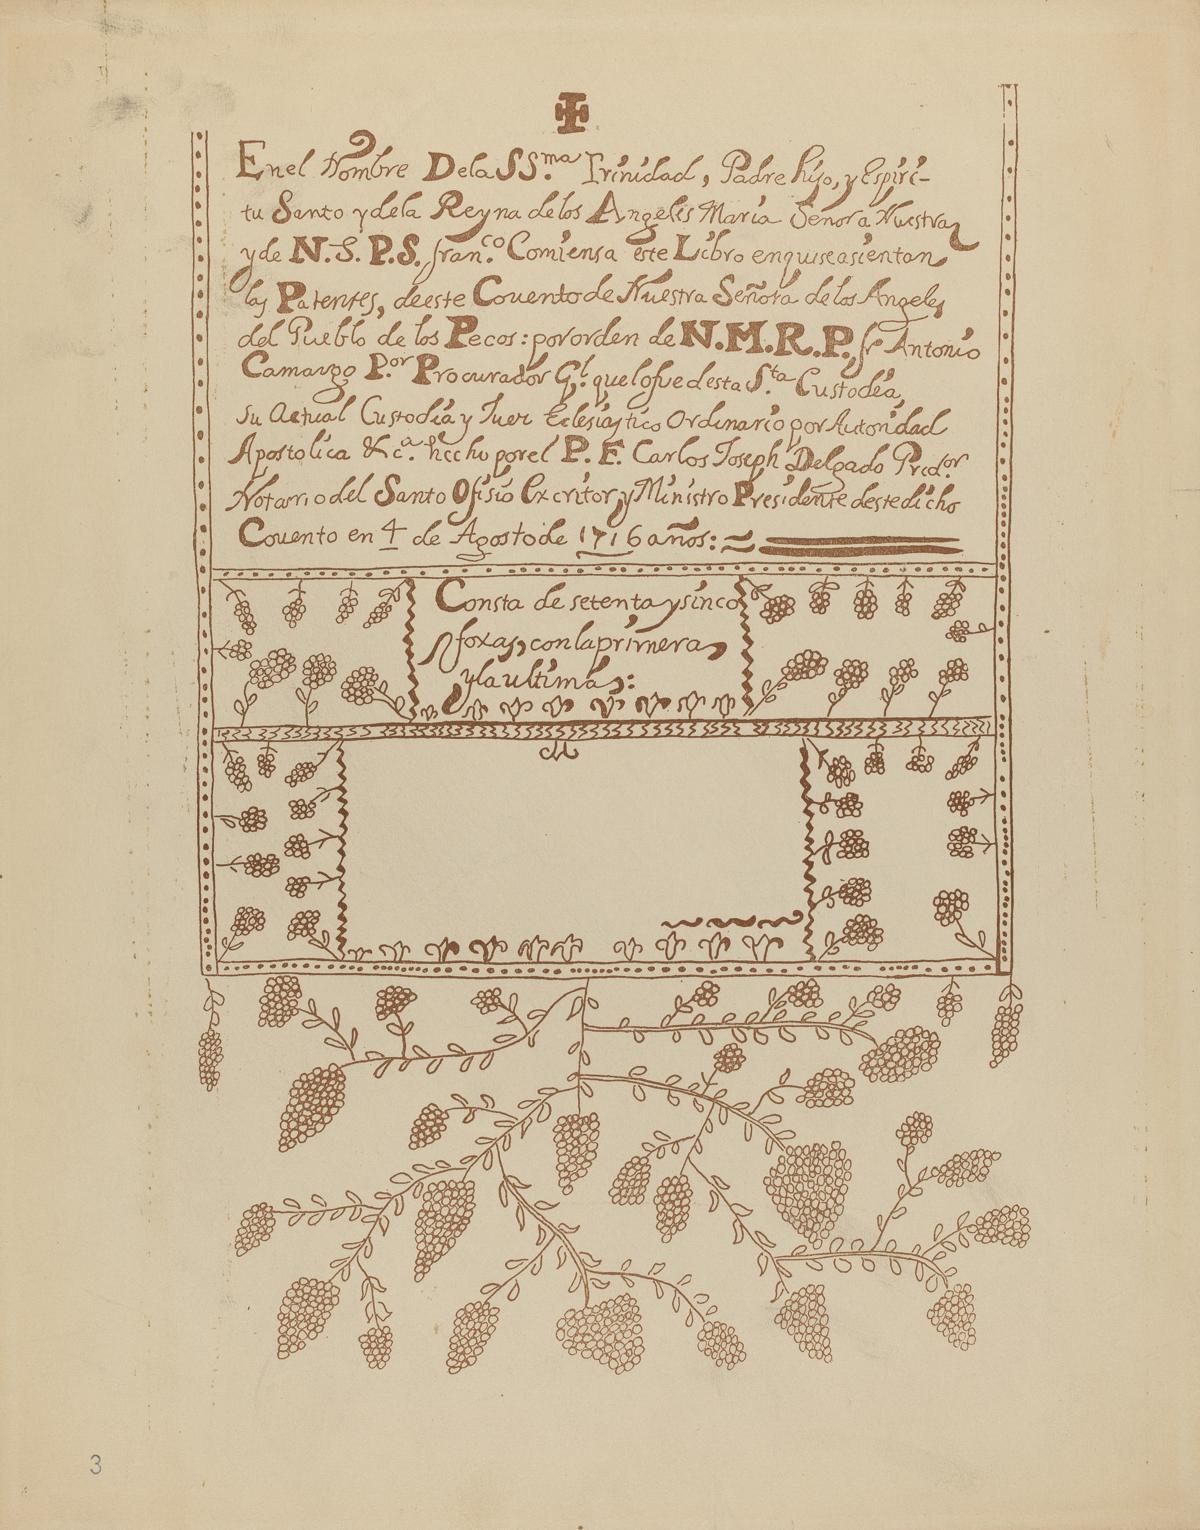 En el Nombre De la SS.ma Trinidad, Padre hijo, y Espiri-
tu Santo y dela Reyna de los Angeles Maria Señora Nuestra
y de N. S. P. S. fran.co Comiensa este Libro en quise asientan
las Patentes, de este Couento de Nuestra Señora de los Angeles
del Pueblo de los Pecos: por orden de N. M. R. P. fr Antonio
Camargo P.or Procurador G.l que lo fue desta S.ta Custodea,
su Actual Custodia y Juez Eclesiastico Ordinario por Autoridad
Apostolica &c.a hecho por el P. F. Carlos Joseph Delgado Pred.or
Notario del Santo Ofisio Excritor, y Ministro Presidente deste dicho
Couento en 4 de Agosto de 1716 años:
Consta de setenta y sinco
foxas, con la primera,
y la ultima:
3